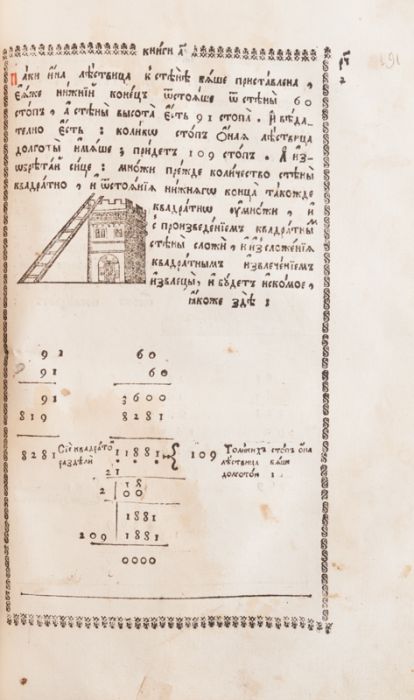 книги а҃
191
Паки нѣкая лѣствица к стѣнѣ бяше приставлена,
еяже нижнїй конецъ ѿстояше ѿ стѣны 60
стопъ, а стѣны высота есть 91 стопа. И вѣда-
телно есть: коликѡ стопъ оная лѣствица
долготы имяше; придетъ, 109 стопъ. А из-
ѡбрѣтай сице: множи прежде количество стѣны
квадратно, и ѿстоянїя нижнягѡ конца такожде
квадратнѡ умножи, и
с произведенїемъ квадратнымъ
стѣны сложи, и из сложенїя
квадратнымъ извлеченїемъ
извлецы, и будетъ искомое,
якоже здѣ:
91 60
91 60
91 3600
819 8281
8281 Сїй квадратъ раздѣли 11881 109 Толикихъ стопъ она лѣствица бяше долготою
21
18
2 00
1881
209 1881
0000